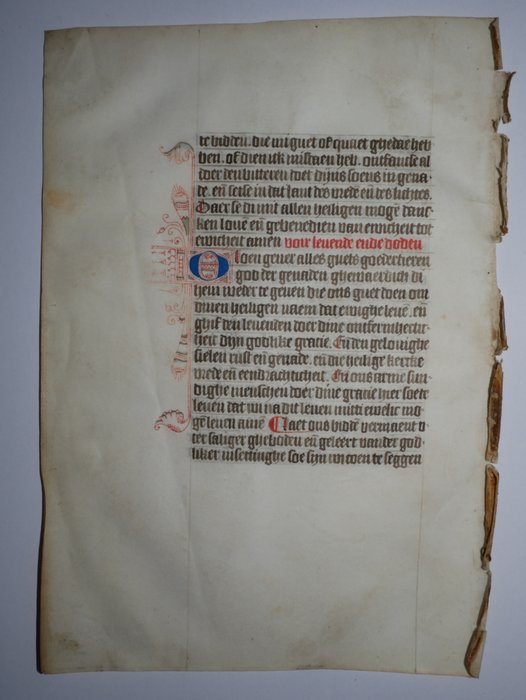 te bidden. die mi guet of quaet ghedae heb
ben. of dien ick misdaen heb. ontfanfse al
doer den bitteren doet dijns soens in gena
de. en setse in dat lant des vrede en des lichtes.
Daer se di mit allen heiligen moge danc
ken loue en gebenedien van ewicheit tot
ewicheit amen voir leuende ende doden
O loen geuer alles guets goedertieren
god der genaden ghewaerdich di
hem weder te geuen die ons guet doen om
dinen heiligen naem dat ewighe leue. en
ghif den leuenden doer dine ontfermherti
heit dijn godlike gracie. En den gelouighe
sielen rust en genade. en die heilige kercke
vrede en eendrachticheit. En ons arme sun
dighe menschen doer dine gracie hier soe te
leuen dat wi na dit leuen mit ewelic mo
ge leuen ame Laet ons bidde vermaent o
ter saliger gheboden en geleert vander god
liker insettinghe soe sijn wi coen te seggen